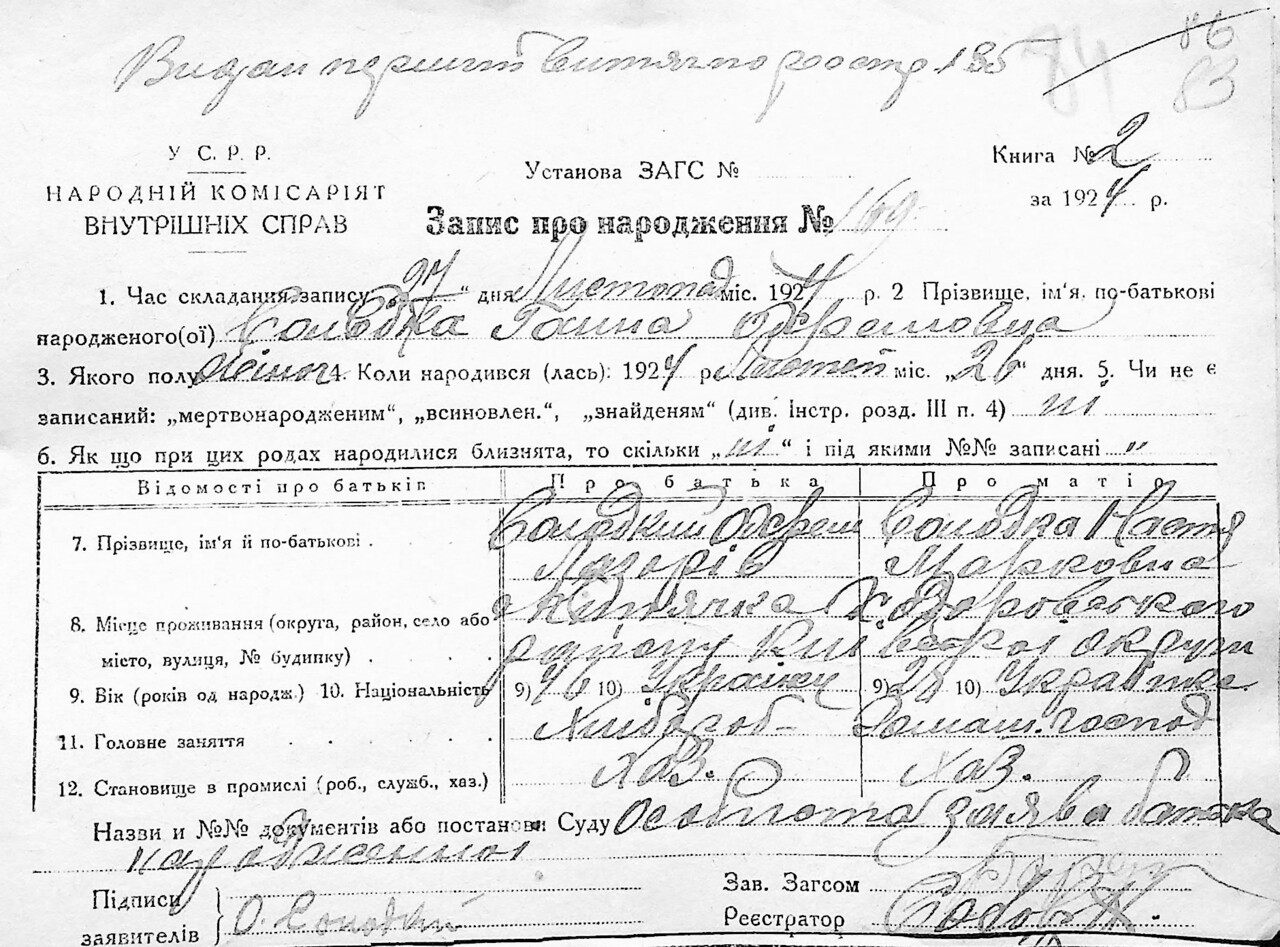 Видан
86
84
83
У С. Р. Р.
НАРОДНІЙ КОМІСАРІЯТ
ВНУТРІШНІХ СПРАВ
Установа ЗАГС №
Запис про народження № 169
Книга № 2
за 1924 р.
1. Час складання запису „27“ дня Листопад міс. 1924 р. 2 Прізвище, ім'я, по-батькові
народженого(ої) Солодка Ганна
3. Якого полу жіноч 4. Коли народився (лась): 1924 р. міс. „26“ дня. 5. Чи не є
записаний: „мертвонародженим“, „всиновлен.“, „знайденям“ (див. Інстр. розд. III п. 4) ні
6. Як що при цих родах народилися близнята, то скільки „ні“ і під якими №№ записані „
Відомості про батьків Про батька Про матір
7. Прізвище, ім'я й по-батькові . Солодкий Солодка Настя
Лазорів Марковна
8. Місце проживання (округа, район, село або Ходоровського
місто, вулиця, № будинку) . . . району Київської округи
9. Вік (років од народж.) 10. Національність 9) 46 10) Українец 9) 28 10) Українка
11. Головне заняття . . . . . Хлібороб Домаш. господ
12. Становище в промислі (роб., служб., хаз.) хаз. хаз.
Назви и №№ документів або постанови Суду Особиста заява батька
народженної
Підписи
заявителів О. Солодкий
Зав. Загсом
Реєстратор